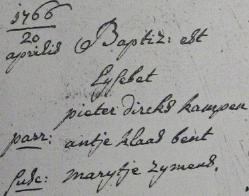 1766
20
aprilis Baptiz: est
Lysebet
pieter dircks kampen
parr: antje klaas bent
susc: marytje zymens.